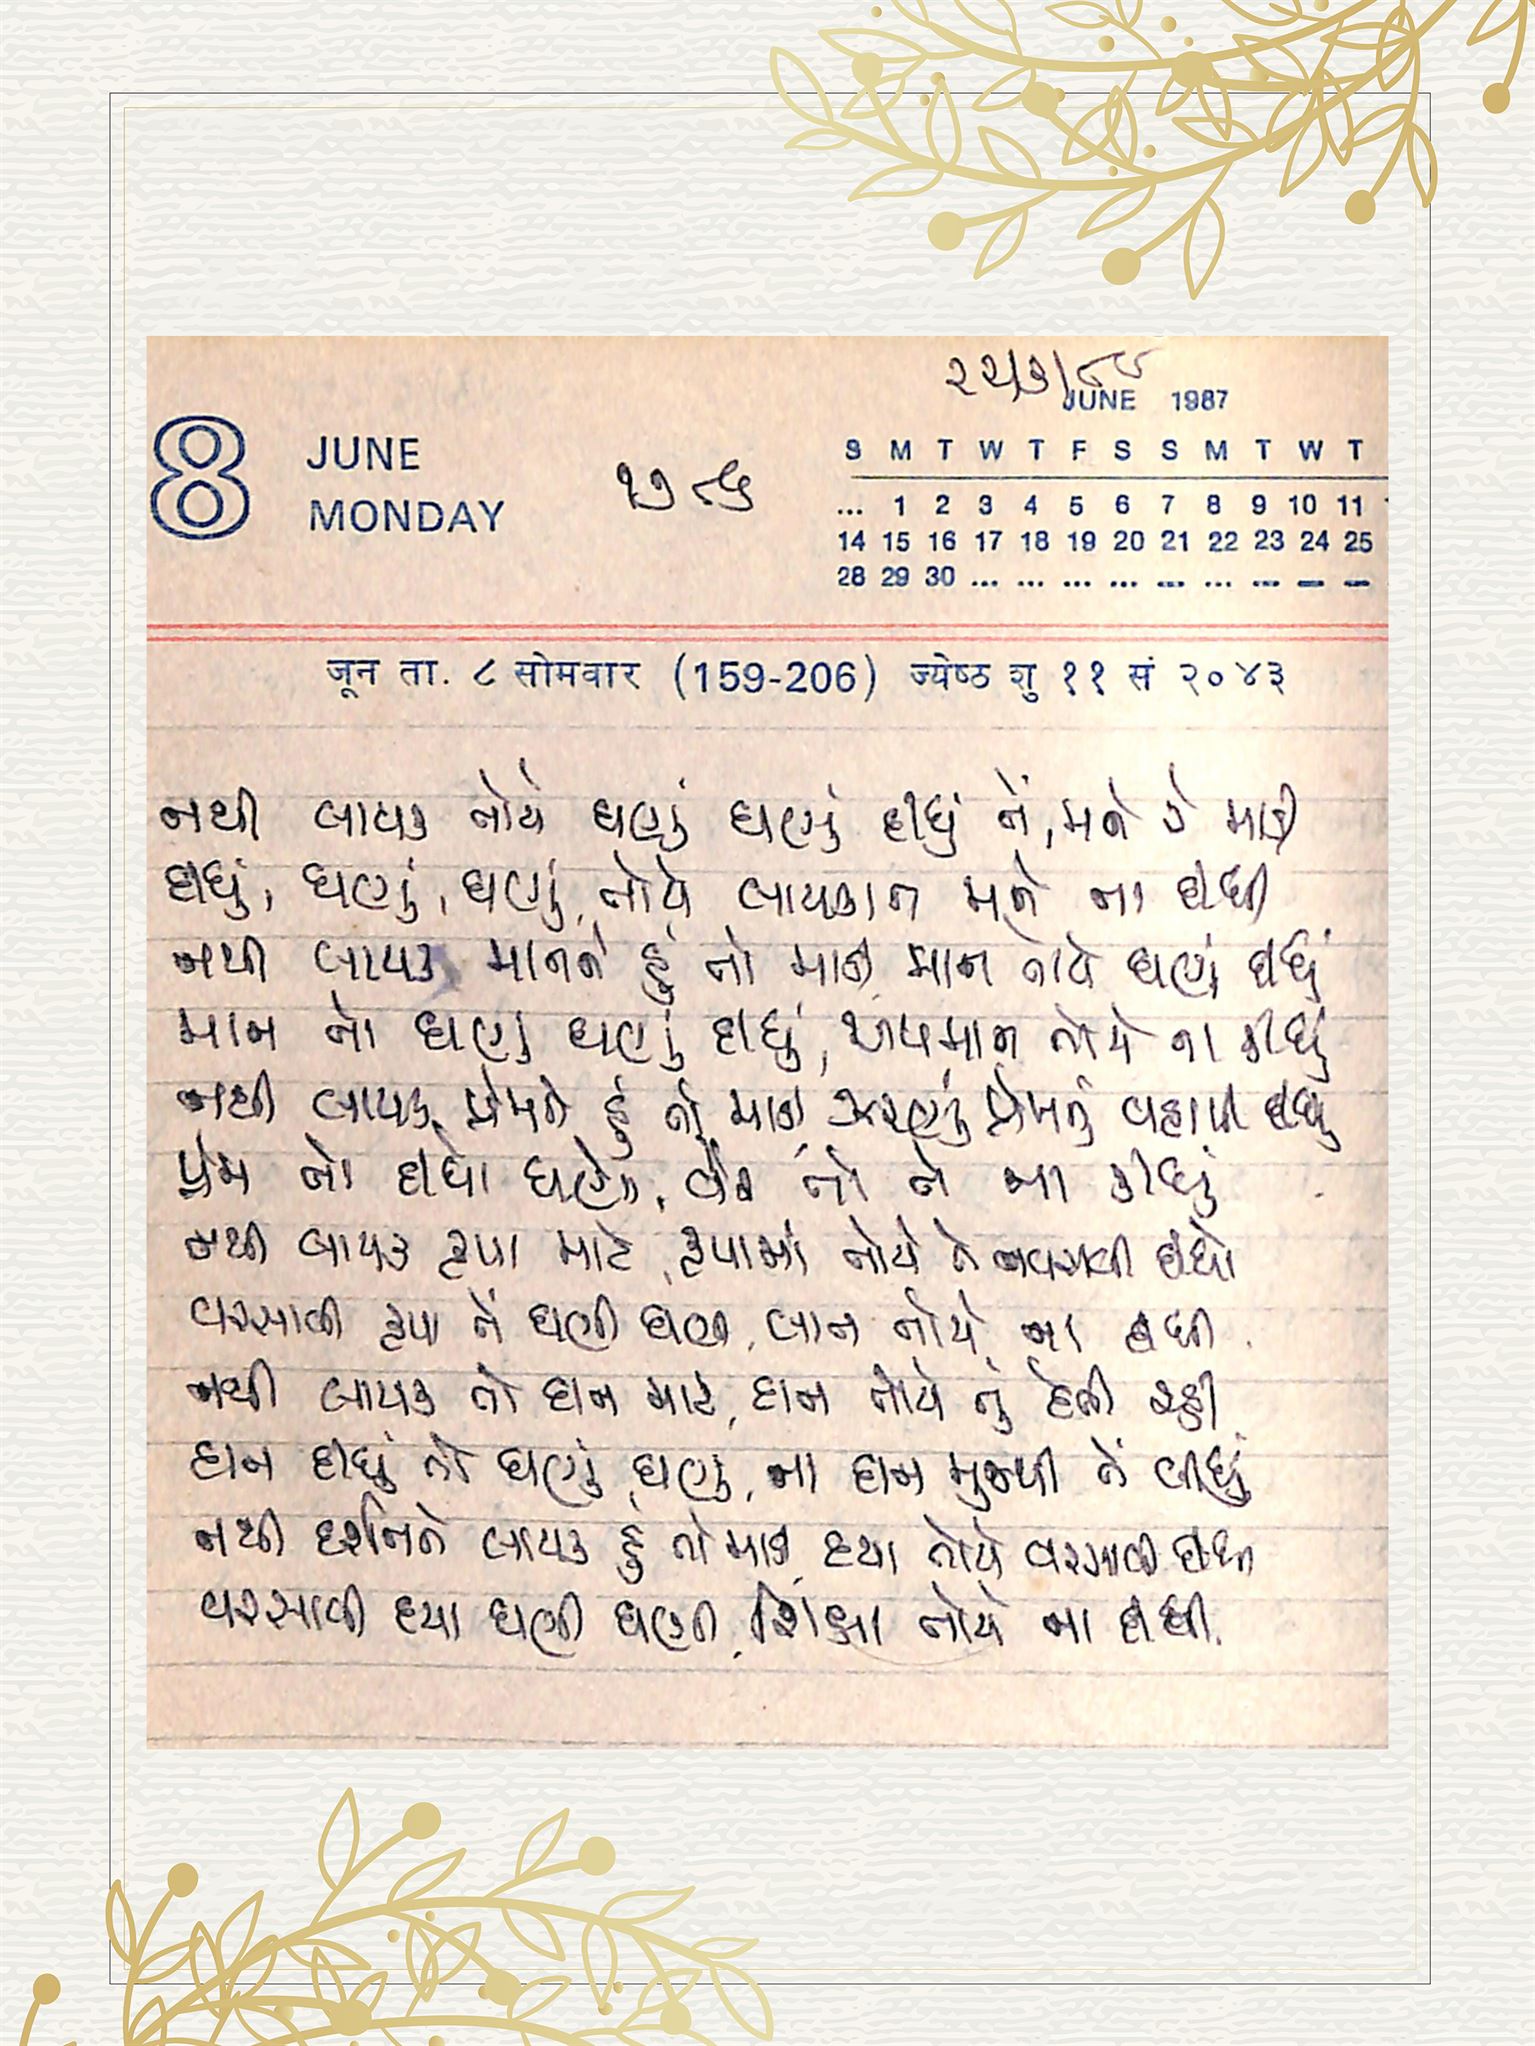 ૨૨/૩/૮૯
JUNE 1987
8 JUNE
MONDAY
૧૭૯૬
S M T W T F S S M T W T
... 1 2 3 4 5 6 7 8 9 10 11
14 15 16 17 18 19 20 21 22 23 24 25
28 29 30 ... ... ... ... ... ... ... ... ...
जून ता. ८ सोमवार (159-206) ज्येष्ठ शु ११ सं २०४३
નથી લાયક તોયે ઘણું ઘણું દીધું તેં, મને રે માડી
દીધું, ઘણું, ઘણું, તોયે લાયકાત મને ના દીધી
નથી લાયક માનને હું તો માડી માન તોયે ઘણું દીધું
માન તો ઘણું ઘણું દીધું, અપમાન તોયે ના કીધું
નથી લાયક પ્રેમને હું તો માડી ઝરણું પ્રેમનું વહાવી દીધું
પ્રેમ તો દીધો ઘણો, વેર તો તે ના કીધું
નથી લાયક કૃપા માટે, કૃપામાં તોયે તે નવરાવી દીધો
વરસાવી કૃપા તેં ઘણી ઘણી, લાત તોયે ના દીધી
નથી લાયક તો દાન માટે, દાન તોયે તું દેતી રહી
દાન દીધું તો ઘણું ઘણું, ના દાન મુજથી તેં લીધું
નથી દર્શનને લાયક હું તો માડી, દયા તોયે વરસાવી દીધી
વરસાવી દયા ઘણી ઘણી, શિક્ષા તોયે ના દીધી.